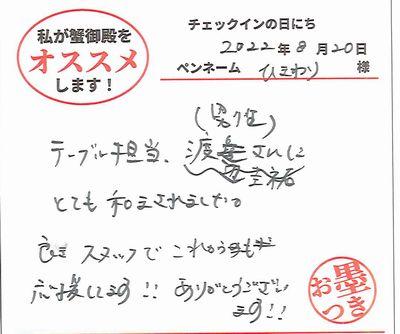 私が蟹御殿を
オススメ
します!
チェックインの日にち
2022年8月20日
ペンネーム ひまわり 様
(男性)
テーブル担当、渡 さんに
とても 和まされました。
スタッフで これからも
応援してます!! ありがとうござい
ます!!
お墨つき